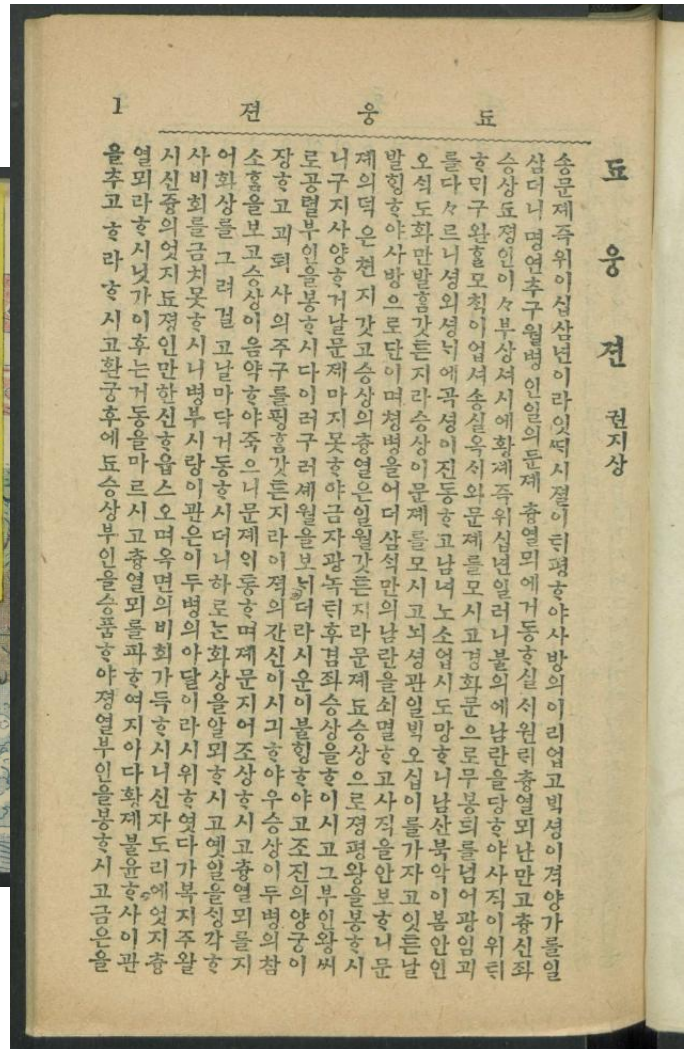 1 젼 웅 됴
됴 웅 젼 권지상
송문졔즉위이십삼년이라잇ᄯᅢ시졀이ᄐᆡ평ᄒᆞ야사방의이리업고ᄇᆡᆨ셩이져양가를일
삼더니명연추구월병인일의문졔츙열뫼에거동ᄒᆞ실ᄉᆡ원ᄅᆡ츙열뫼난만고츙신좌
승상됴졍인이々부상셔시에황졔즉위십년일러니불의에남란을당ᄒᆞ야사직이위ᄐᆡ
ᄒᆞᄆᆡ구완ᄒᆞᆯ모칙이업셔송실옥ᄉᆡ와문졔를모시고경화문으로무봉ᄐᆡ를넘어광임괴
를다々르니셩외셩ᄂᆡ에곡셩이진동ᄒᆞ고남녀노소업시도망ᄒᆞ니남산북악이봄안인
오ᄉᆡᆨ도화만발ᄒᆞᆷ갓튼지라승상이문졔를모시고뇌셩관일ᄇᆡᆨ오십이를가자고잇튼날
발ᄒᆡᆼᄒᆞ야사방으로단이며쳥병을어더삼ᄉᆡᆨ만의남란을쇠멸ᄒᆞ고사직을안보ᄒᆞ니문
졔의덕은쳔지갓고승상의츙열은일월갓튼지라문졔됴승상으로졍평왕을봉ᄒᆞ시
니구지사양ᄒᆞ거날문졔마지못ᄒᆞ야금자광녹ᄐᆡ후겸좌승상을ᄒᆞ이시고그부인왕씨
로공렬부인을봉ᄒᆞ시다이러구러셰월을보ᄂᆡ더라시운이불ᄒᆡᆼᄒᆞ야고조진의양궁이
장ᄒᆞ고괴퇴사의주구를ᄑᆡᆼᄒᆞᆷ갓튼지라이젹의간신이시긔ᄒᆞ야우승상이두병의참
소홈을보고승상이음약ᄒᆞ야죽으니문졔ᄋᆡ통ᄒᆞ며졔문지어조상ᄒᆞ시고츙열뫼를지
어화상를그려걸고날마닥거동ᄒᆞ시더니하로는화상을알뫼ᄒᆞ시고옛일을ᄉᆡᆼ각ᄒᆞ
사비회를금치못ᄒᆞ시니병부시랑이관은이두병의아달이라시위ᄒᆞ엿다가복지주왈
시신즁의엇지됴졍인만한신ᄒᆞ읍스오며옥면의비회가득ᄒᆞ시니신자도리에엇지츙
열뫼라ᄒᆞ시닛가이후는거동을마르시고츙열뫼를파ᄒᆞ여지아다황졔불윤ᄒᆞ사이관
을추고ᄒᆞ라ᄒᆞ시고환궁후에됴승상부인을승품ᄒᆞ야졍열부인을봉ᄒᆞ시고금은을